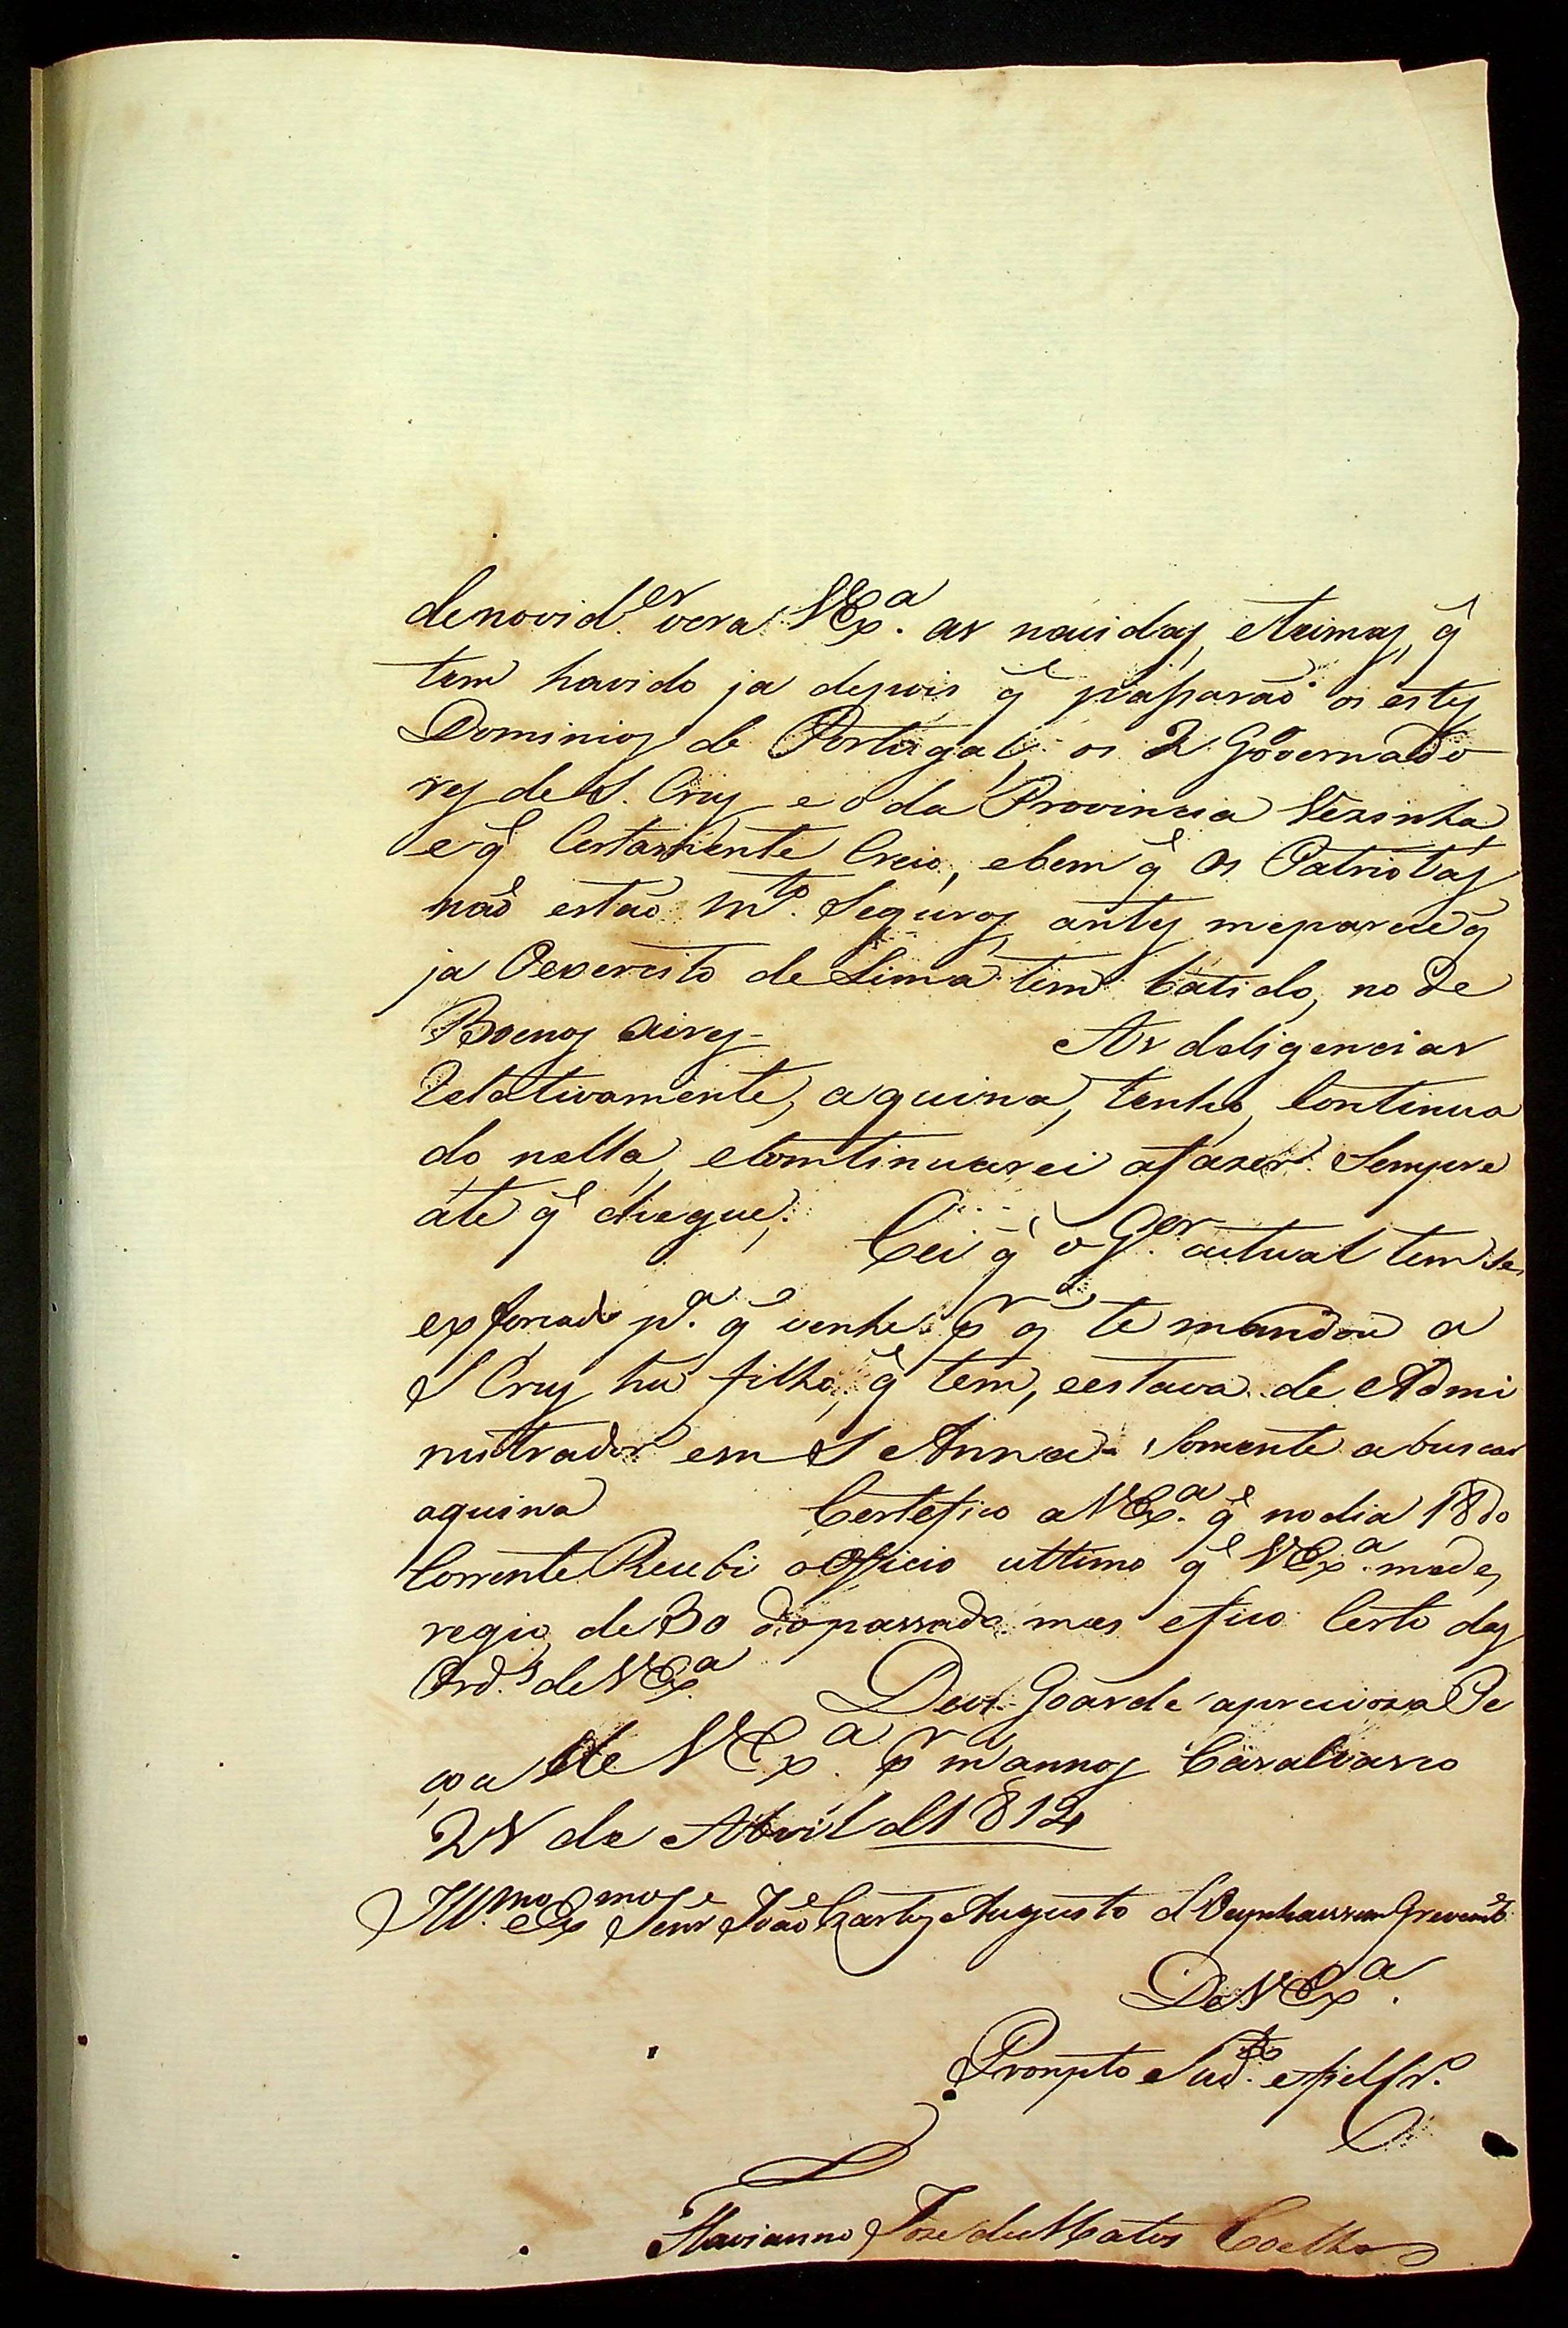 denovid.es vera VExa. as nacidas, etrimas, q̃
tem havido ja depois q̃ passaraõ os estes
Dominios de Portugal, os 2 Governado
res de S. Cruz e o da Provincia Vezinha,
e q̃ Certamente Creio, ebem q̃ os Patriotas
naõ estaõ mto. Seguros, antes meparece q̃
ja Oexercito de Lima tem batido, no de
Boenos Aires- As deligencias
Relativamente, aquina, tenho, Continua
do nella, eComtinuarei afazer Sempre
áte q̃ chegue; Cei q̃ o Gor. autual tem se
exforcado pa. q̃ venha pr q̃ te mandou a
S Cruz hu filho, q̃ tem, eestava de Admi
nistrador em S Anna- Somente abuscar
aquina Certefico aVExa. q̃ nodia 18 do
Corrente Recebi oOfficio ultimo q̃ VExa. me
regio, de 30 dopassado mes efico Certo das
Ord.s de VExa. Deos Goarde apreciosa Pe
çoa de VExa. pr m annos Casalvasco
28 de Abril d1812
Illmo. eExmo Senr Joaõ Carlos Augusto d'Oeynhausen Grevemb
DeVExa.
Prompto Sudo. efiel Cr.
Flavianno Joze de Matos Coelho